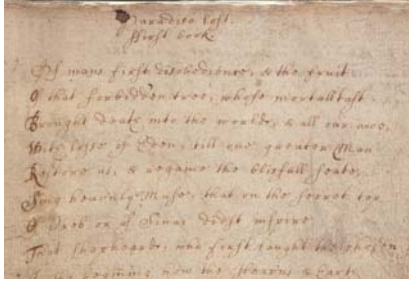 Paradise lost.
ffirst book
Of mans first disobedience, & the fruit
Of that forbidden tree, whose mortall tast
Brought death into the world, & all our woe,
With losse of Eden, till one greater Man
Restore us, & regaine the blissfull seate,
Sing heavenly Muse, that on the secret top
Of Oreb or of Sinai didst inspire
That shepheard, who first taught the chosen